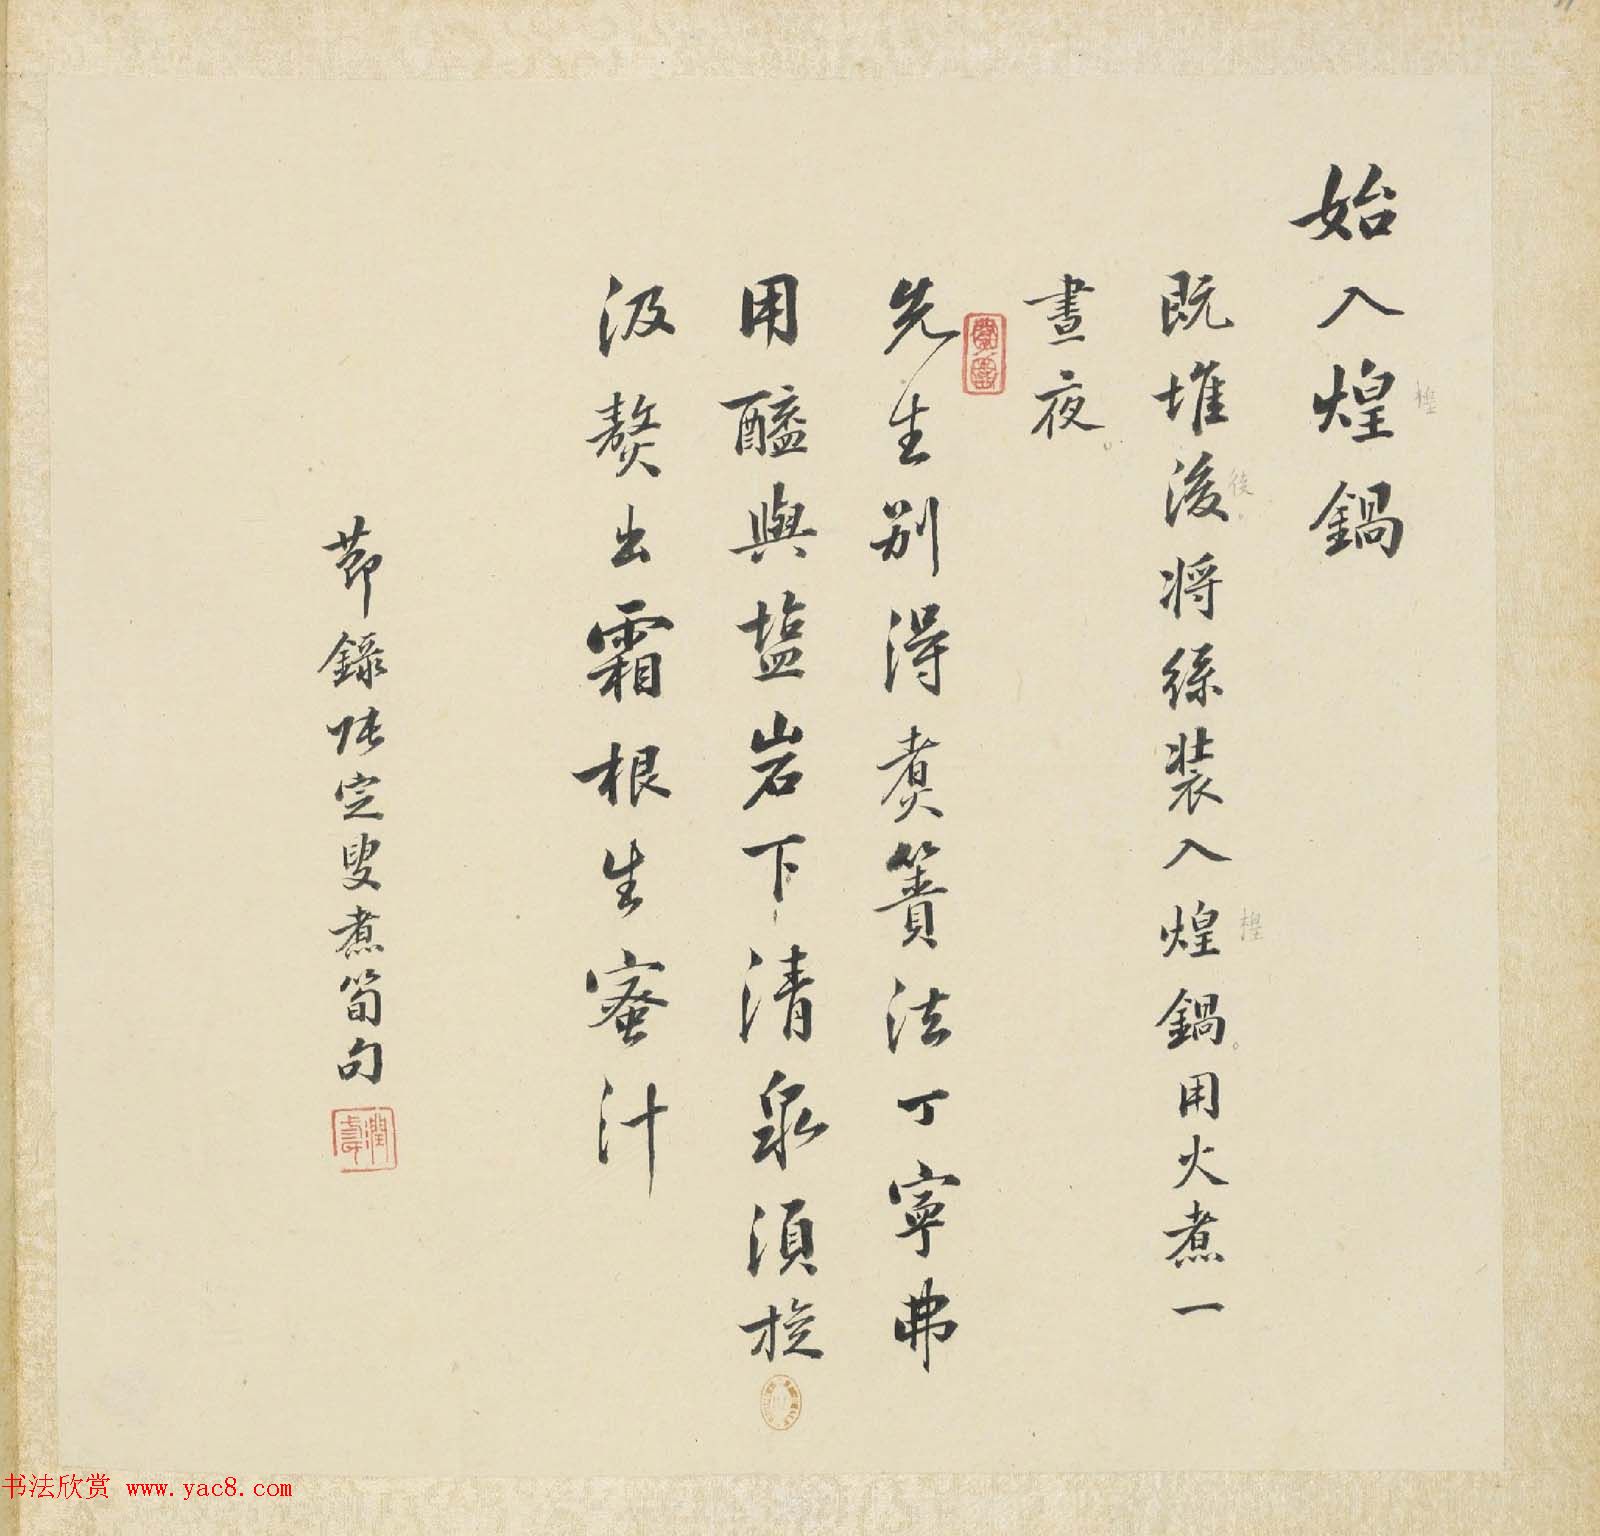 始入煌鍋
既堆後将絲装入煌鍋用火煮一
晝夜
先生别得煑簀法丁寧弗
用醯與塩岩下清泉須旋
汲熬出霜根生蜜汁
節錄張定叟煮筍句
楻
後
楻
书法欣赏 www.yac8.com